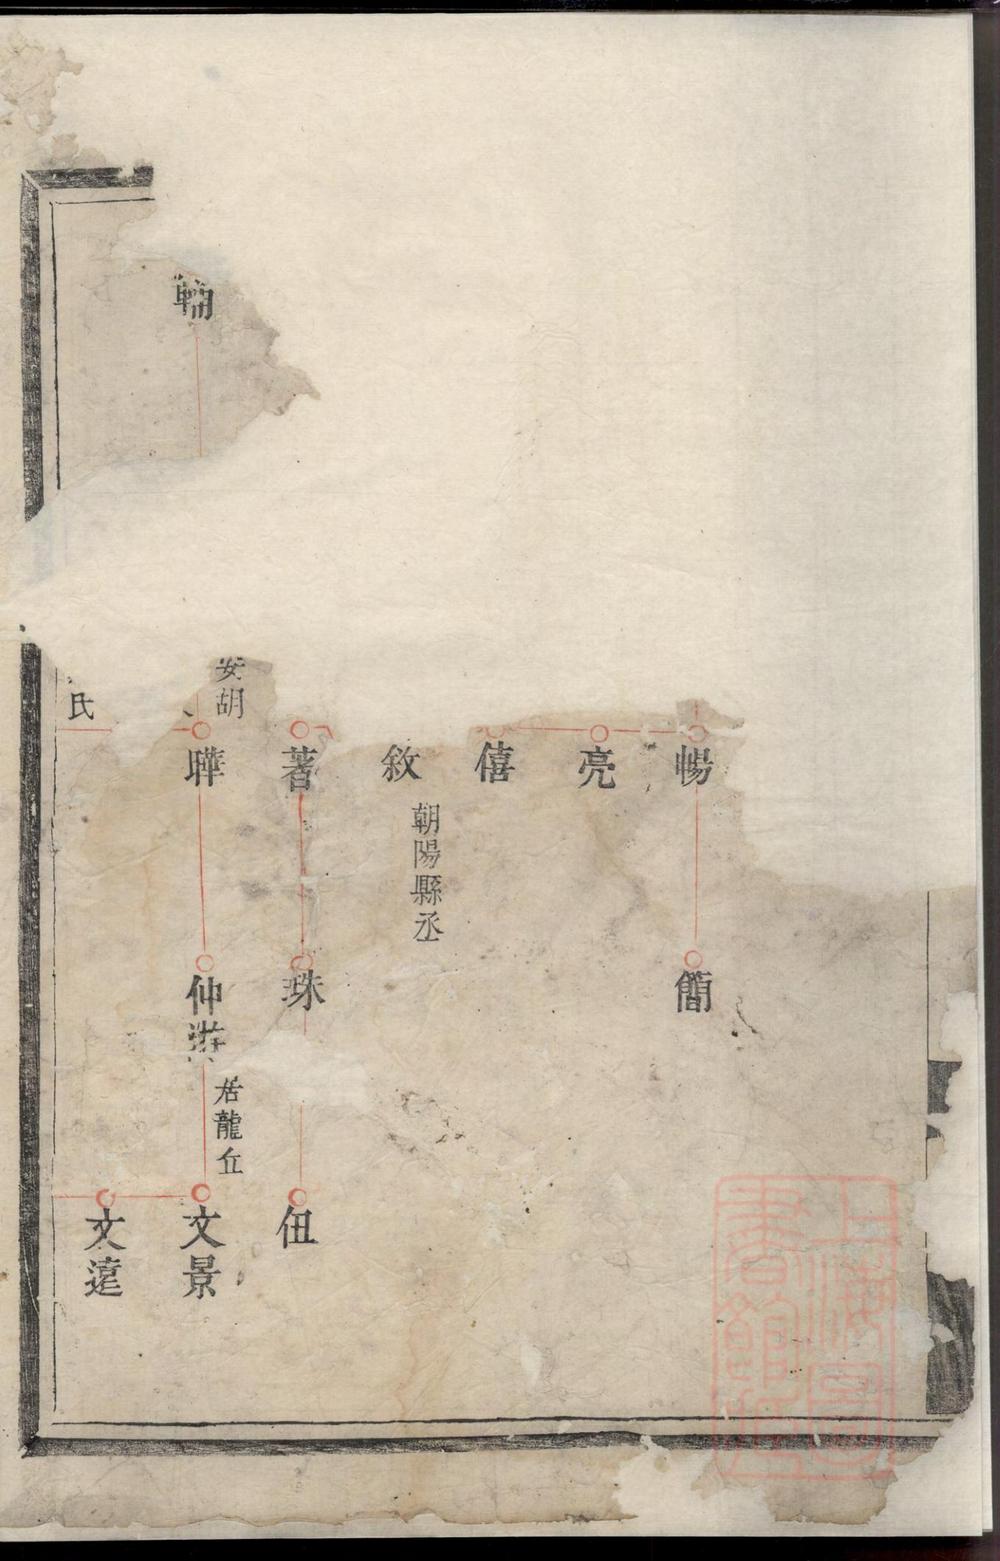 暢
簡
亮
僖
敘
朝陽縣丞
著
珠
伹
安胡
曄
仲
居龍丘
文景
氏
文遠
上海圖書館藏